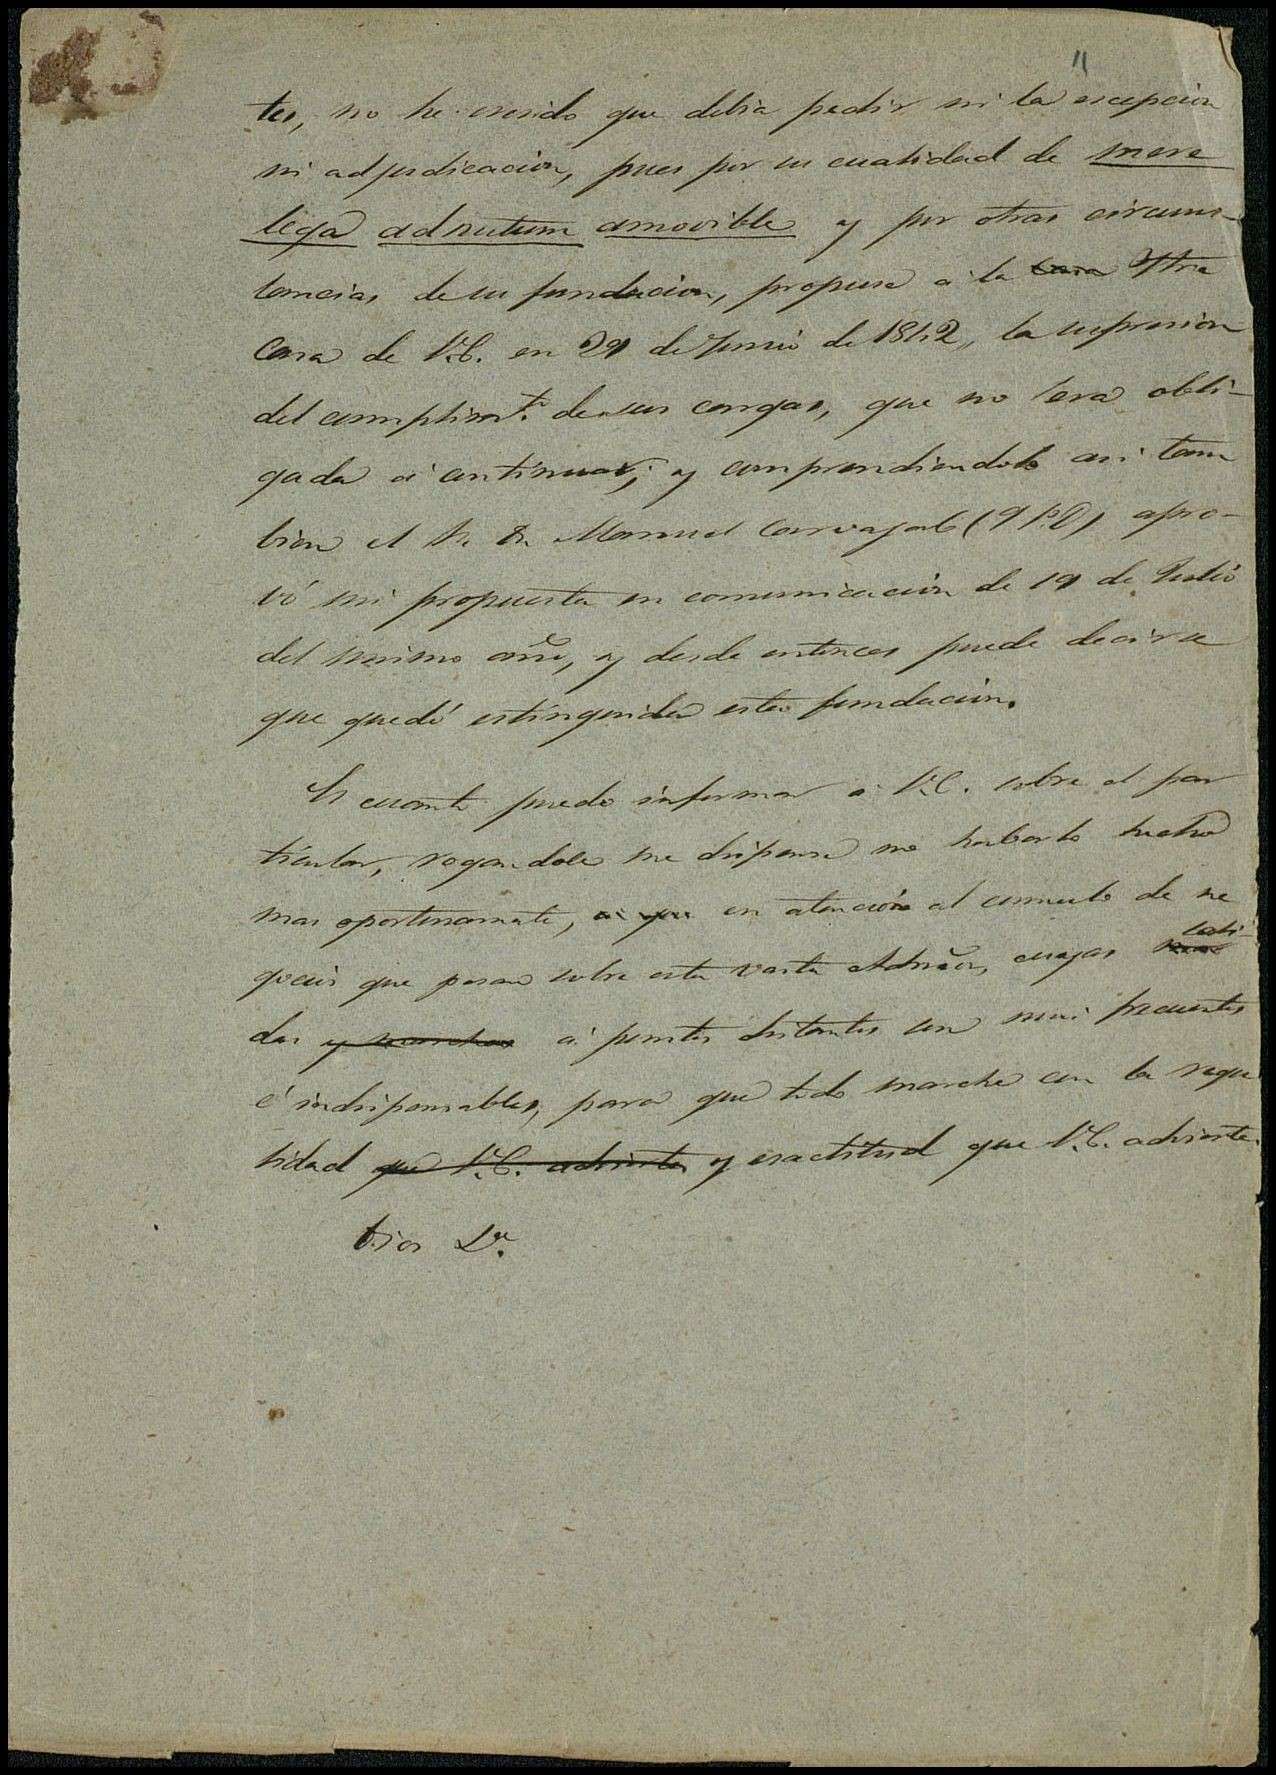 tes, no he creido que debia pedir ni la escepcion
ni adjudicacion, pues por su cualidad de mere
lega adnutum amovible y por otras circuns-
tancias de su fundacion, propuse á la casa Yltrã
Casa de V.E. en 29 de Junio de 1842, la supresion
del cumplim.to de sus cargas, que no era obli-
gada á continuar; y comprendiendolo asi tam
bien el Sr. Dn. Manuel Carvajal (q P.D) apro-
bó mi propuesta en comunicacion de 19 de Julio
del mismo año, y desde entonces puede decirse
que quedó estinguida esta fundacion.
Es cuanto puedo informar á V.E. sobre el par
ticular, rogandole me dispense no haberlo hecho
mas oportunamente, en atencion al cumulo de ne
gocios que pesan sobre esta vasta Admõn, cuyas sali-
das y marchas á puntos distantes son mui frecuentes
é indispensables, para que todo marche con la regu
lidad que V.E. advierta y exactitud que V.E. advierte.
Dios &.a